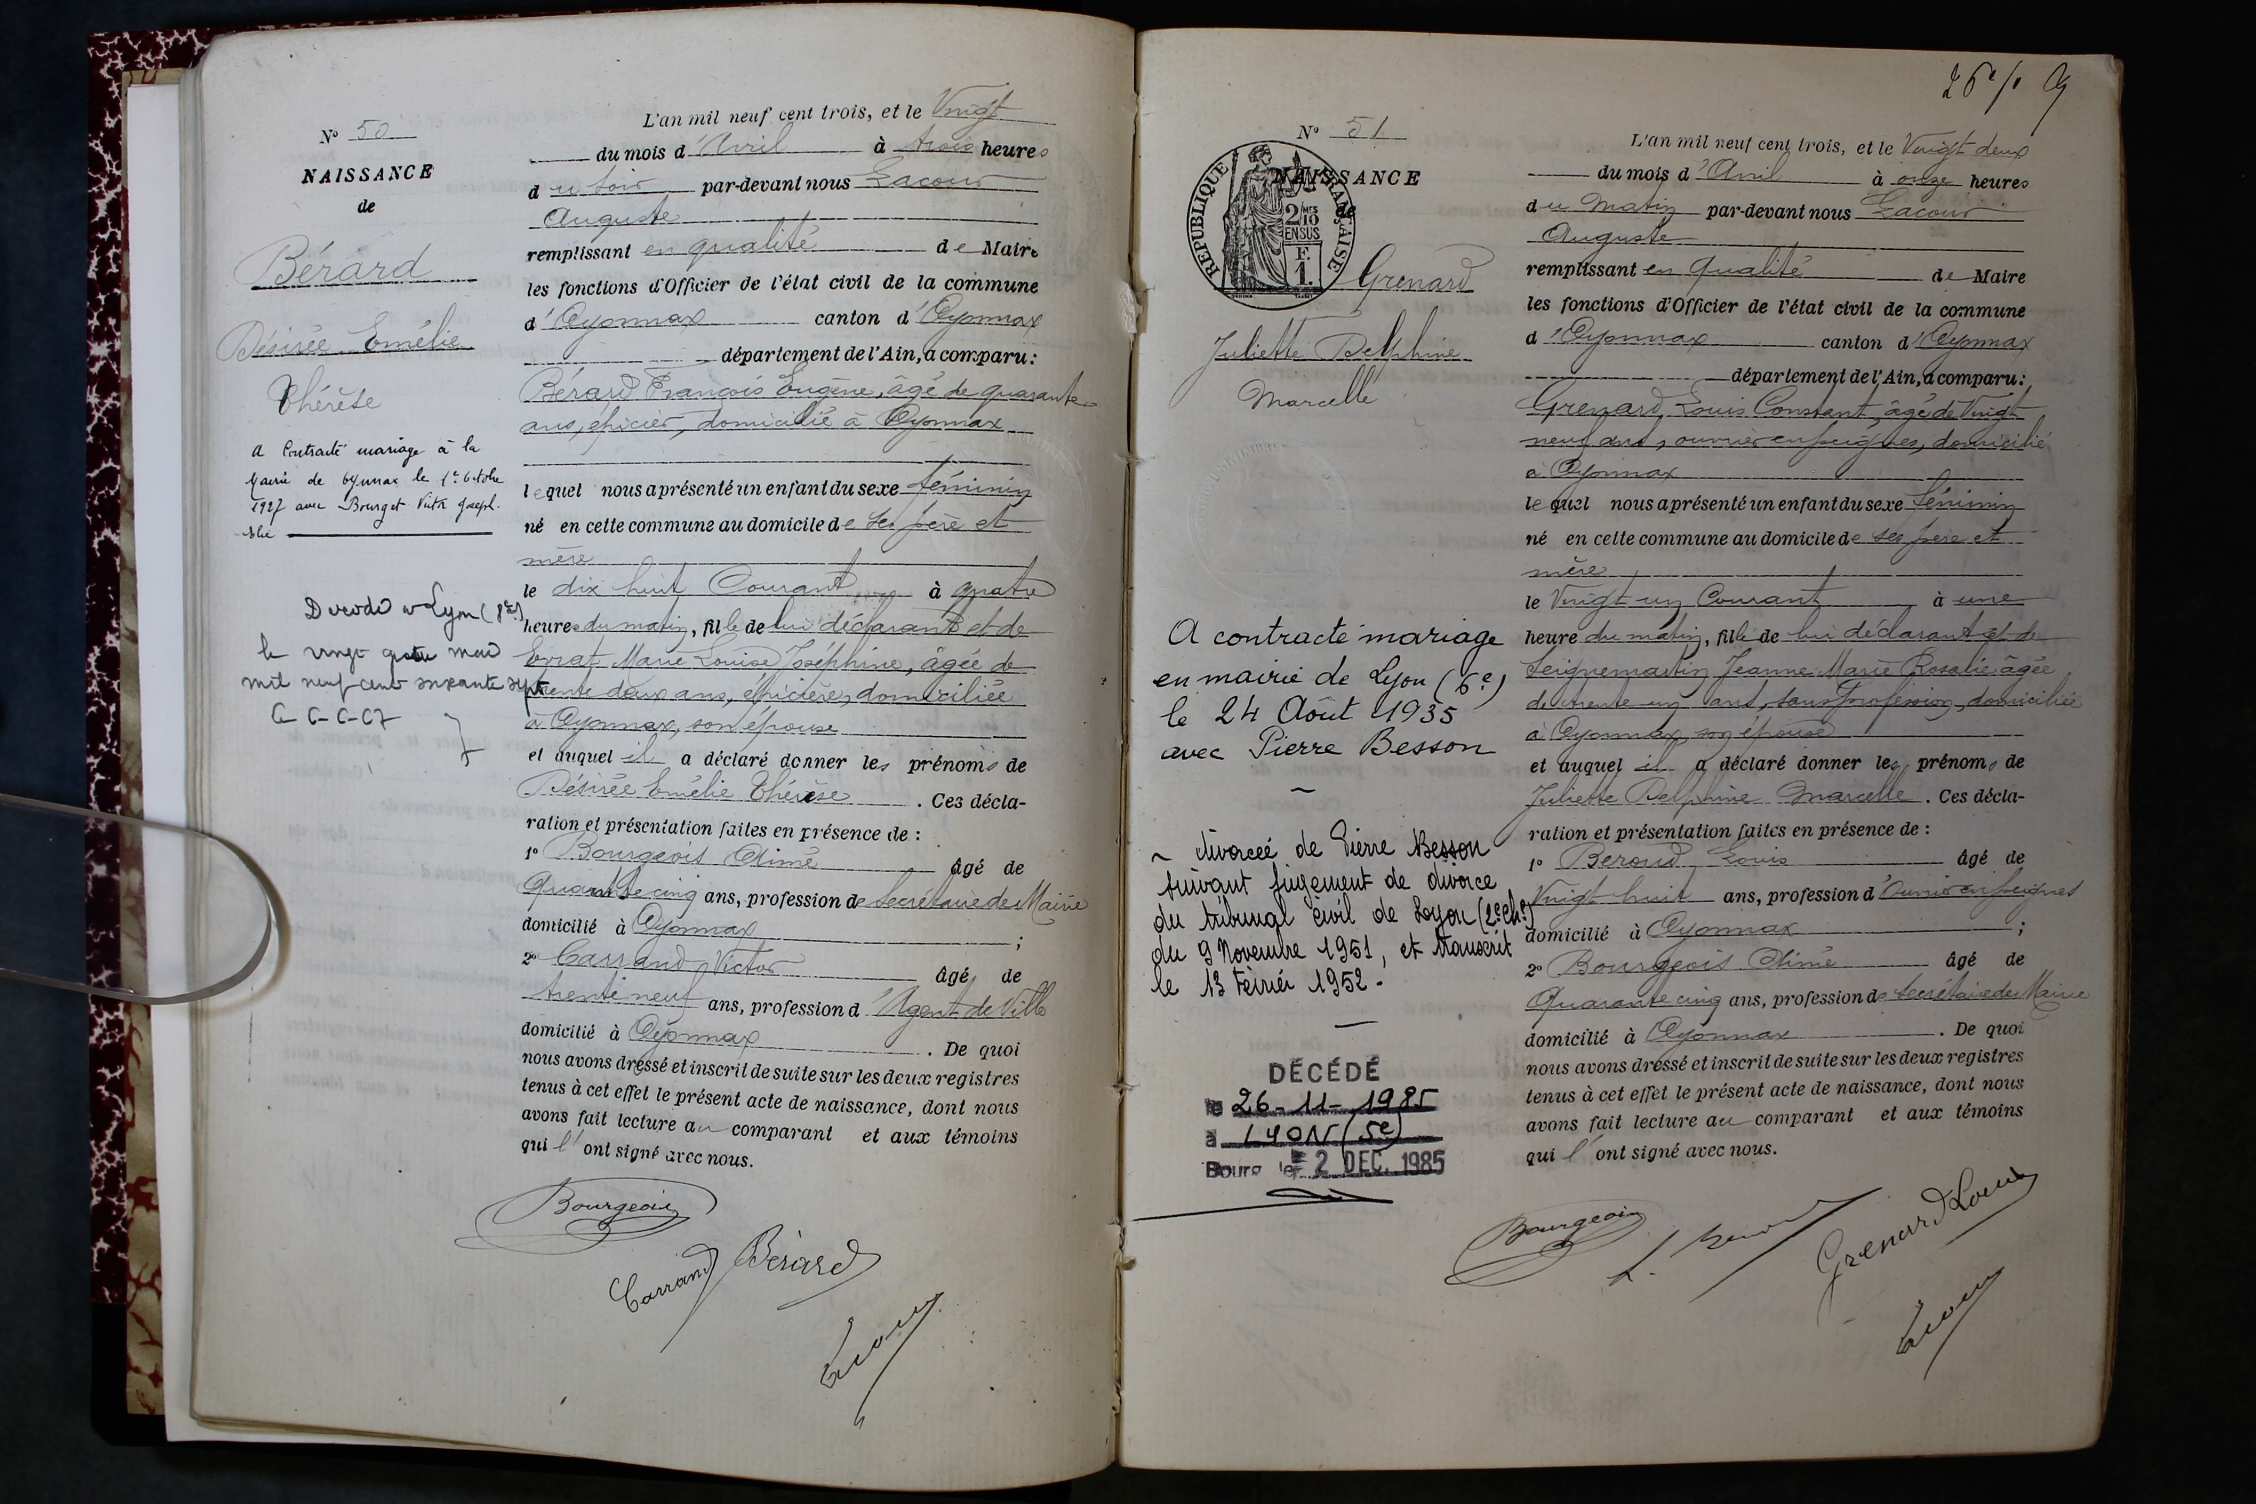 N° 50
NAISSANCE
de
Bérard
Désirée Emélie
Thérèse
a Contracté mariage à la
Mairie de Oyonnax le 1er Octobre
1927 avec Bourget Victor Joseph
Décédée à Lyon (8e)
le vingt quatre mai
mil neuf cent soixante sept
L'an mil neuf cent trois, et le Vingt
du mois d'Avril à trois heures
du soir par-devant nous Lacour
Auguste
remplissant en qualité de Maire
les fonctions d'Officier de l'état civil de la commune
d'Oyonnax canton d'Oyonnax
département de l'Ain, a comparu:
Bérard François Eugène, âgé de quarante
ans, épicier, domicilié à Oyonnax
lequel nous a présenté un enfant du sexe féminin
né en cette commune au domicile de ses père et
mère
le dix huit Courant à quatre
heures du matin, fille de lui déclarant et de
Evrat Marie Louise Joséphine, âgée de
trente deux ans, épicière, domiciliée
à Oyonnax, son épouse
et auquel il a déclaré donner les prénoms de
Désirée Emélie Thérèse . Ces décla-
ration et présentation faites en présence de :
1° Bourgeois Aimé âgé de
Quarante cinq ans, profession de Secrétaire de Mairie
domicilié à Oyonnax ;
2° Carrand Victor âgé de
trente neuf ans, profession d'Agent de Ville
domicilié à Oyonnax . De quoi
nous avons dressé et inscrit de suite sur les deux registres
tenus à cet effet le présent acte de naissance, dont nous
avons fait lecture au comparant et aux témoins
qui l'ont signé avec nous.
Bourgeois
Carrand Bérard
Lacour
26e/. 
N° 51
NAISSANCE
de
REPUBLIQUE FRANÇAISE
2/10
EN SUS
F.
1.
Grenard
Juliette Delphine
Marcelle
A contracté mariage
en mairie de Lyon (6e)
le 24 Août 1935
avec Pierre Besson
divorcée de Pierre Besson
suivant jugement de divorce
du tribunal civil de Lyon (2e ch.)
du 9 Novembre 1951, et transcrit
le 13 Février 1952.
DÉCÉDÉ
le 26-11-1985
à LYON (5e)
Bourg le 2 DEC. 1985
L'an mil neuf cent trois, et le Vingt deux
du mois d'Avril à onze heures
du Matin par-devant nous Lacour
Auguste
remplissant en qualité de Maire
les fonctions d'Officier de l'état civil de la commune
d'Oyonnax canton d'Oyonnax
département de l'Ain, a comparu:
Grenard, Louis Constant, âgé de Vingt
neuf ans, ouvrier en peignes, domicilié
à Oyonnax
lequel nous a présenté un enfant du sexe féminin
né en cette commune au domicile de ses père et
mère
le Vingt un Courant à une
heure du matin, fille de lui déclarant et de
Seignemartin Jeanne Marie Rosalie âgée
de trente un ans, sans profession, domiciliée
à Oyonnax, son épouse
et auquel il a déclaré donner les prénoms de
Juliette Delphine Marcelle . Ces décla-
ration et présentation faites en présence de :
1° Beroud Louis âgé de
Vingt huit ans, profession d'Ouvrier en peignes
domicilié à Oyonnax ;
2° Bourgeois Aimé âgé de
Quarante cinq ans, profession de Secrétaire de Mairie
domicilié à Oyonnax . De quoi
nous avons dressé et inscrit de suite sur les deux registres
tenus à cet effet le présent acte de naissance, dont nous
avons fait lecture au comparant et aux témoins
qui l'ont signé avec nous.
Bourgeois
Grenard Louis
Lacour